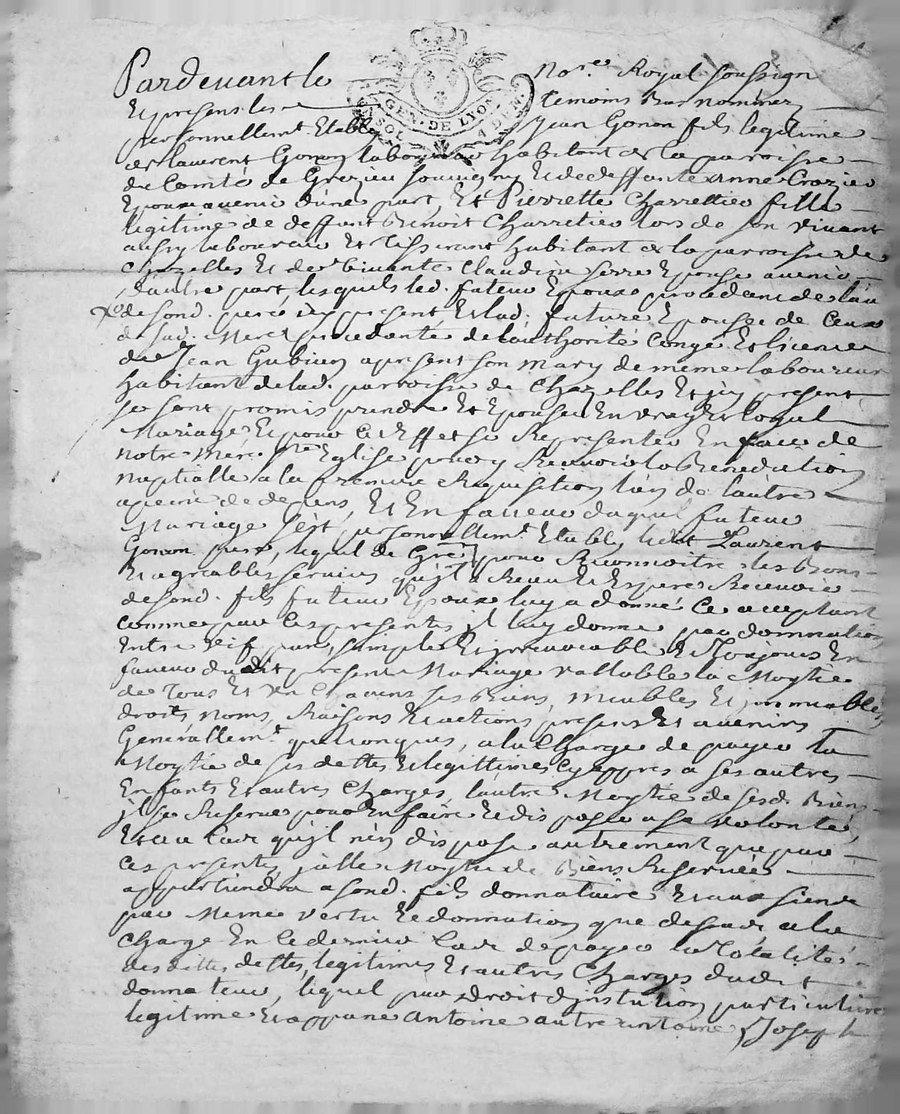 Pardevant le No.re Royal soussign
Et presens les temoins Bas nommez
GEN. DE LYON
personnellemt Etably Jean Gonon fils legitime
de Laurent Gonon laboureur habitant de la parroisse
de Comté de Grezieu Souvigny Et de deffante Anne Crozier
Epoux avenir d'une part, Et Pierrette Charretier fille
legitime de deffunt Benoit Charretier lors de son vivant
aussy laboureur Et tisserant habitant de la parroisse de
Chazelles Et de vivante Claudine Serre Epouse avenir
d'autre part, lesquels led. futeur Epoux procedant de l'au
de sond. pere icy present Et lad. future Epouse de Ceux
de sad. Mere procedante de l'authorité Congé Et licence
de Jean Gubian apresent son mary de meme laboureur
habitant de lad. parroisse de Chazelles Et icy present
se sont promis prendre Et Epouser En vray Et loyal
Mariage Et pour Cet Effet se Representer En face de
notre Mere Ste Eglise pour y Recevoir la Benediction
nuptialle a la premiere Requisition l'un de l'autre
apeine de depens, Et En faveur duquel futeur
Mariage s'est personnellemt. Etably ledit Laurent
Gonon pere, lequel de Gré pour Reconnoitre les Bons
Et agreables services qu'jl a Receu Et Espere Recevoir
de sond. fils futeur Epoux luy a donné Ce acceptant
comme par ces presentes jl luy donne par donnation
Entre vif pure, simple Et jrrevocable Et Toujours En
faveur dudit present Mariage vallable la Moytié
de Tous Et Un Chacuns ses Biens, meubles Et jmmeubles,
droits, noms, Raisons Et actions presens Et avenirs
Generallemt. quelconques, a la Charge de payer la
Moytié de ses dettes Et legittimes Cy appres a ses autres
Enfants Et autres Charges, l'autre Moytié de sesd. Biens
jl se Reserve pour En faire Et dis poser a sa volonté,
Et au Cas qu'jl n'en dispose autrement que par
ces presentes, jcelle Moytié de Biens Reservée
appartiendra a sond. fils donnataire Et aux siens
par Meme vertu de donnation que dessus a la
Charge En Ce dernier Cas de payer la Totalité
des dittes dettes, legitimes Et autres Charges dudit
donnateur, lequel par droit d'jnstution particuliere
legitime Et appane Antoine autre Antoine, Joseph